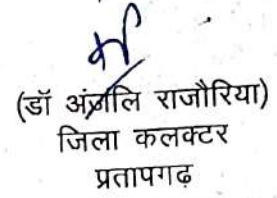 (डॉ अंजलि राजौरिया)
जिला कलक्टर
प्रतापगढ़